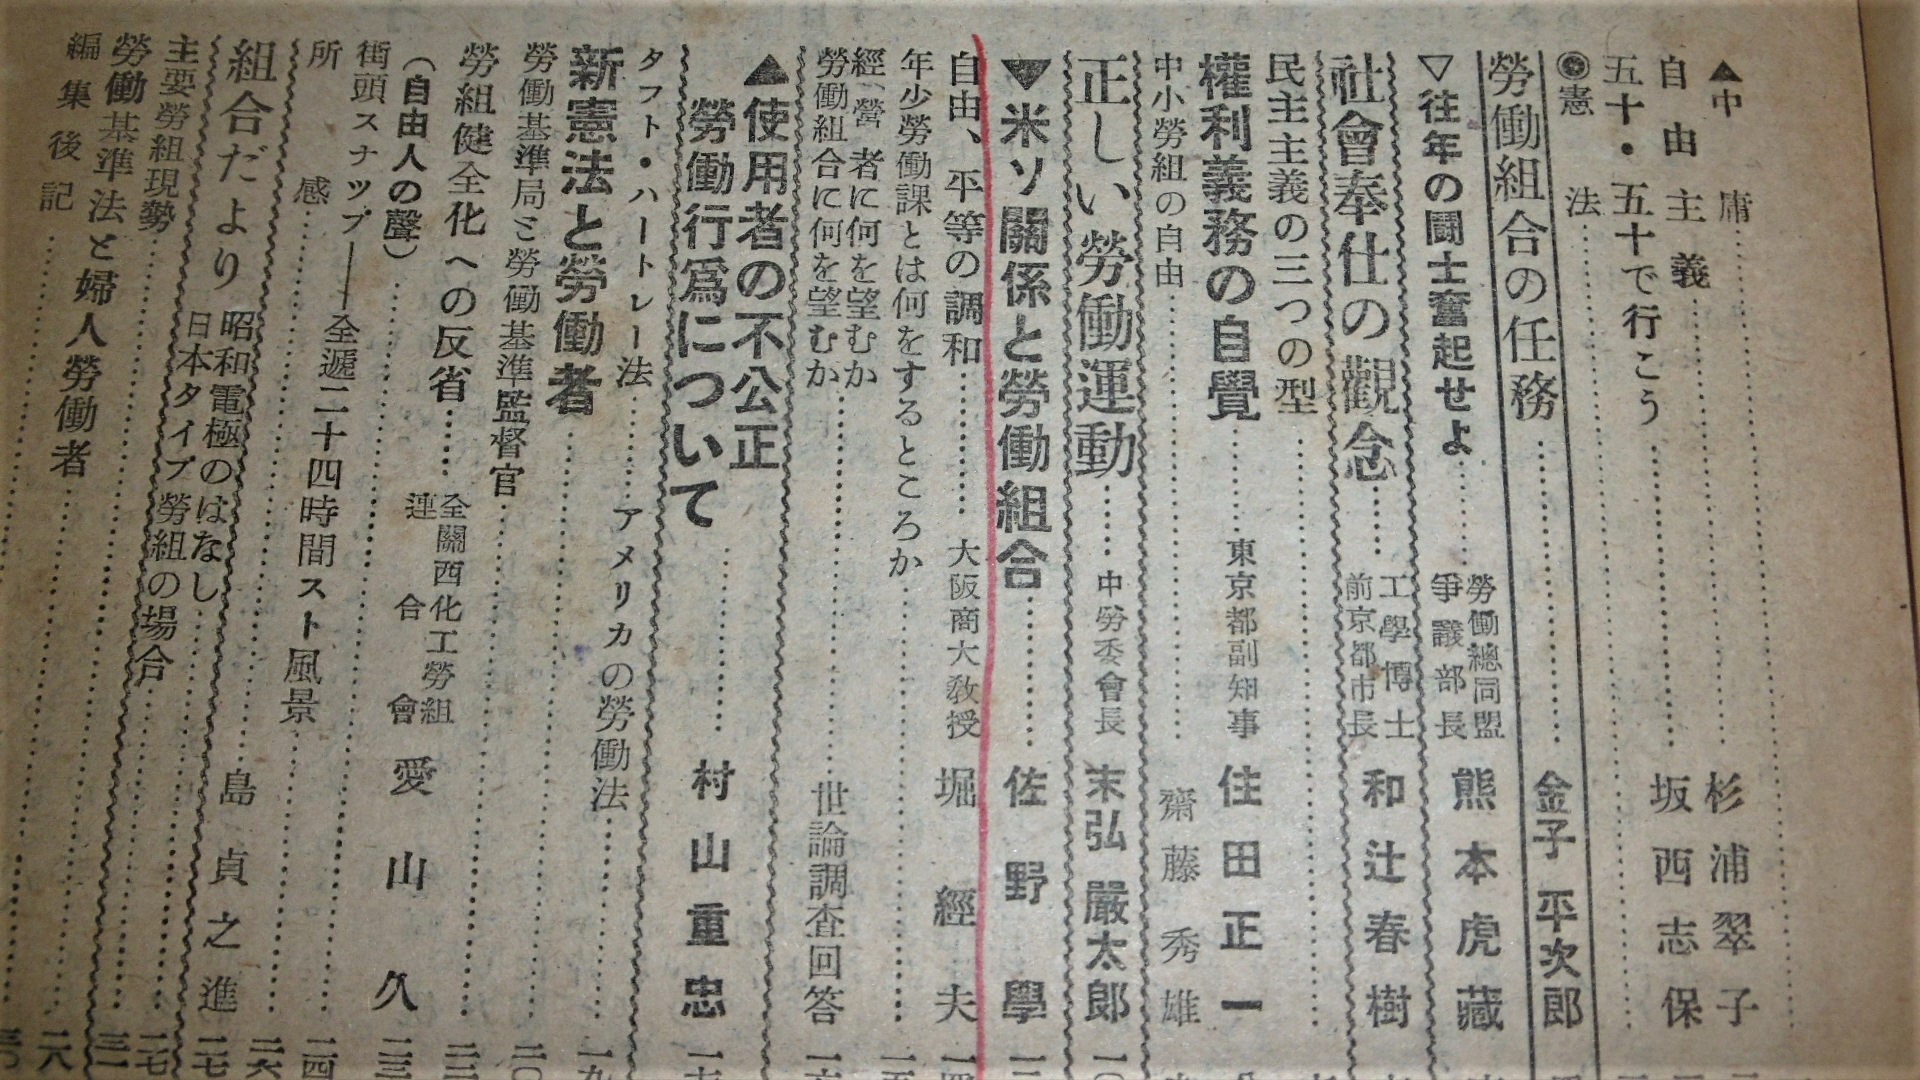 ▲中庸……杉浦翠子
自由主義……坂西志保
五十・五十で行こう
◉憲法
勞働組合の任務……金子平次郎
▽往年の闘士奮起せよ……勞働總同盟爭議部長 熊本虎藏
社會奉仕の觀念……工學博士 前京都市長 和辻春樹
民主主義の三つの型
權利義務の自覺……東京都副知事 住田正一
中小勞組の自由……齋藤秀雄
正しい勞働運動……中勞委會長 末弘嚴太郎 一〇
▼米ソ關係と勞働組合……佐野學 一二
自由、平等の調和……大阪商大教授 堀經夫 一四
年少勞働課とは何をするところか……一五
經營者に何を望むか
勞働組合に何を望むか……世論調査回答 一六
▲使用者の不公正
勞働行爲について……村山重忠 一七
タフト・ハートレー法……アメリカの勞働法……一九
新憲法と勞働者……二〇
勞働基準局ミ勞働基準監督官……二二
勞組健全化への反省……全關西化工勞組連合會 愛山久 二三
(自由人の聲)
街頭スナップ――全遞二十四時間スト風景……二四
所感……二六
組合だより 昭和電極のはなし……島貞之進 二七
日本タイプ勞組の場合……二七
主要勞組現勢……三一
勞働基準法と婦人勞働者……二八
編集後記